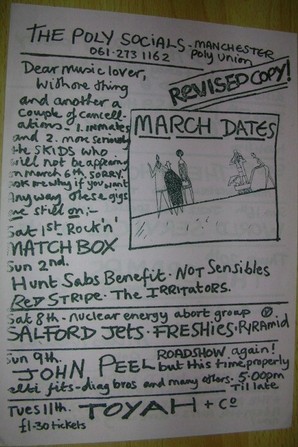 THE POLY SOCIALS - MANCHESTER
061-273 1162 Poly Union
REVISED COPY!
Dear music lover,
With one thing
and another a
couple of cancell-
ations - 1. INMATES
and 2. more seriously
the SKIDS who
will not be appearing
on march 6th. SORRY.
ask me why if you want
Anyway these gigs
are still on;-
MARCH DATES
Sat 1st Rock'n'
MATCHBOX
Sun 2nd.
Hunt Sabs Benefit. NOT SENSIBLES
RED STRIPE. The IRRITATORS.
Sat 8th - nuclear energy abort group
SALFORD JETS. FRESHIES. PYRAMID
Sun 9th. ROADSHOW again!
JOHN PEEL but this time, properly
fits - diag bros and many others. 5.00pm
Til late
Tues 11th. TOYAH + Co
£1.30 tickets